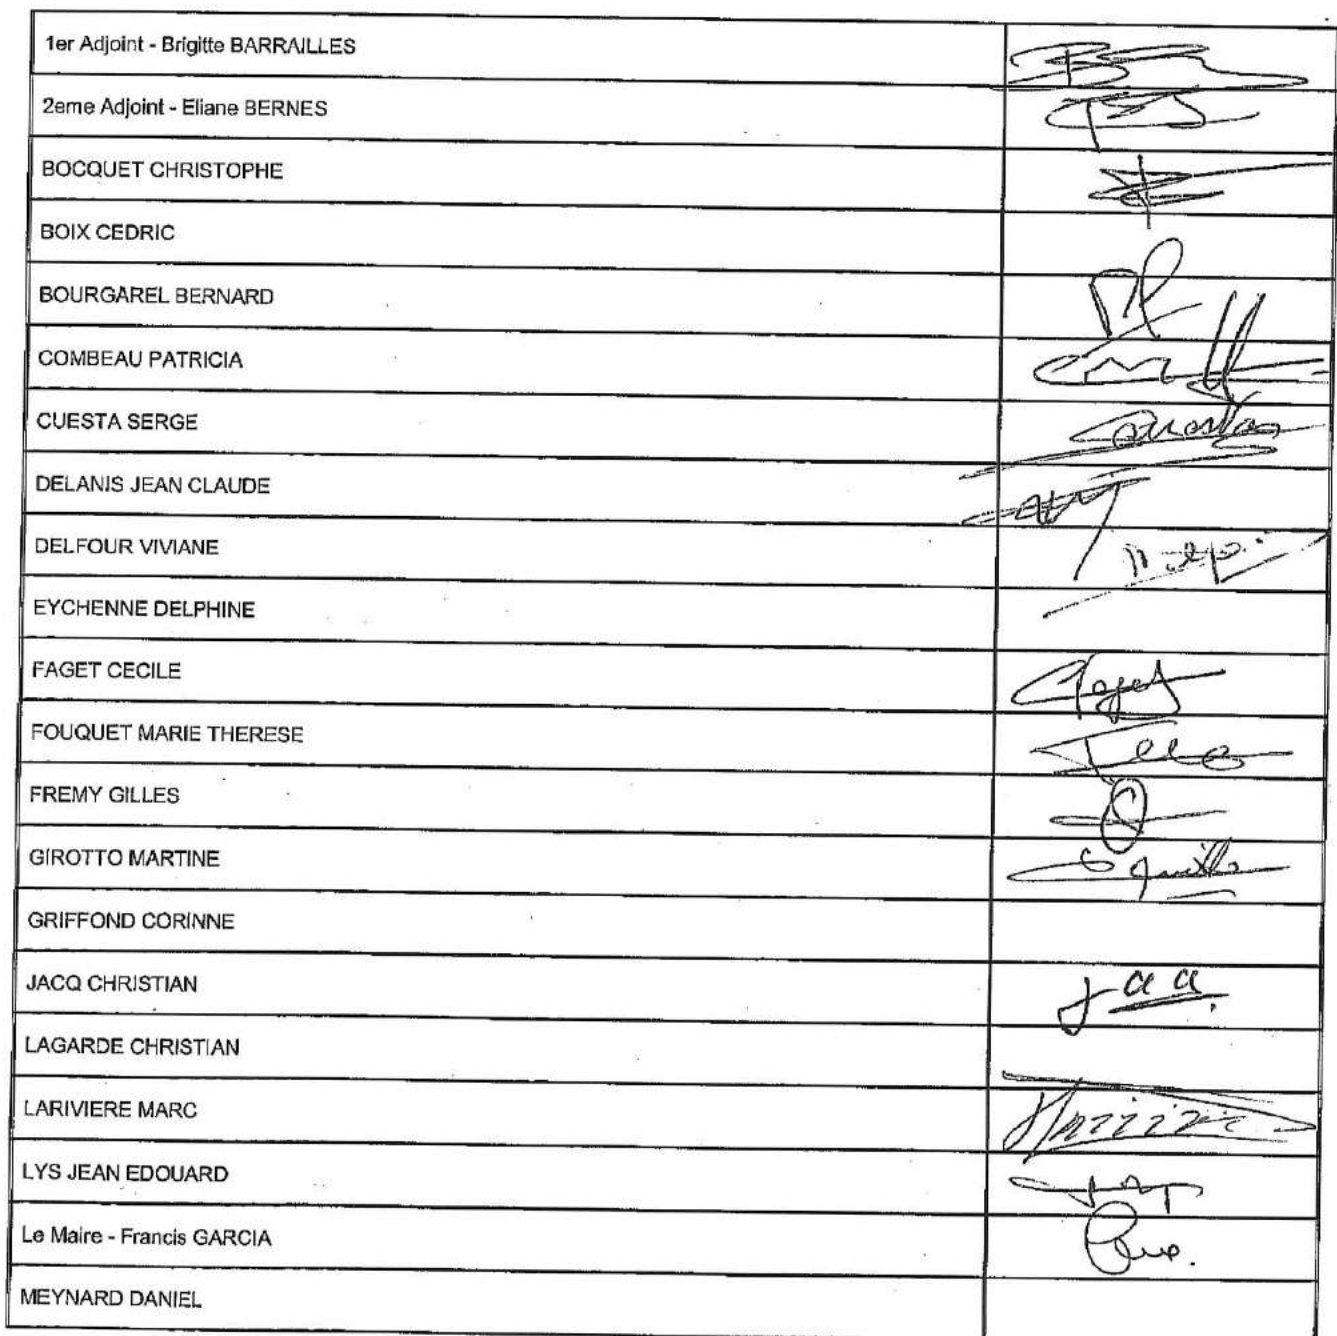 1er Adjoint - Brigitte BARRAILLES
2eme Adjoint - Eliane BERNES
BOCQUET CHRISTOPHE
BOIX CEDRIC
BOURGAREL BERNARD
COMBEAU PATRICIA
CUESTA SERGE
DELANIS JEAN CLAUDE
DELFOUR VIVIANE
EYCHENNE DELPHINE
FAGET CECILE
FOUQUET MARIE THERESE
FREMY GILLES
GIROTTO MARTINE
GRIFFOND CORINNE
JACQ CHRISTIAN
LAGARDE CHRISTIAN
LARIVIERE MARC
LYS JEAN EDOUARD
Le Maire - Francis GARCIA
MEYNARD DANIEL